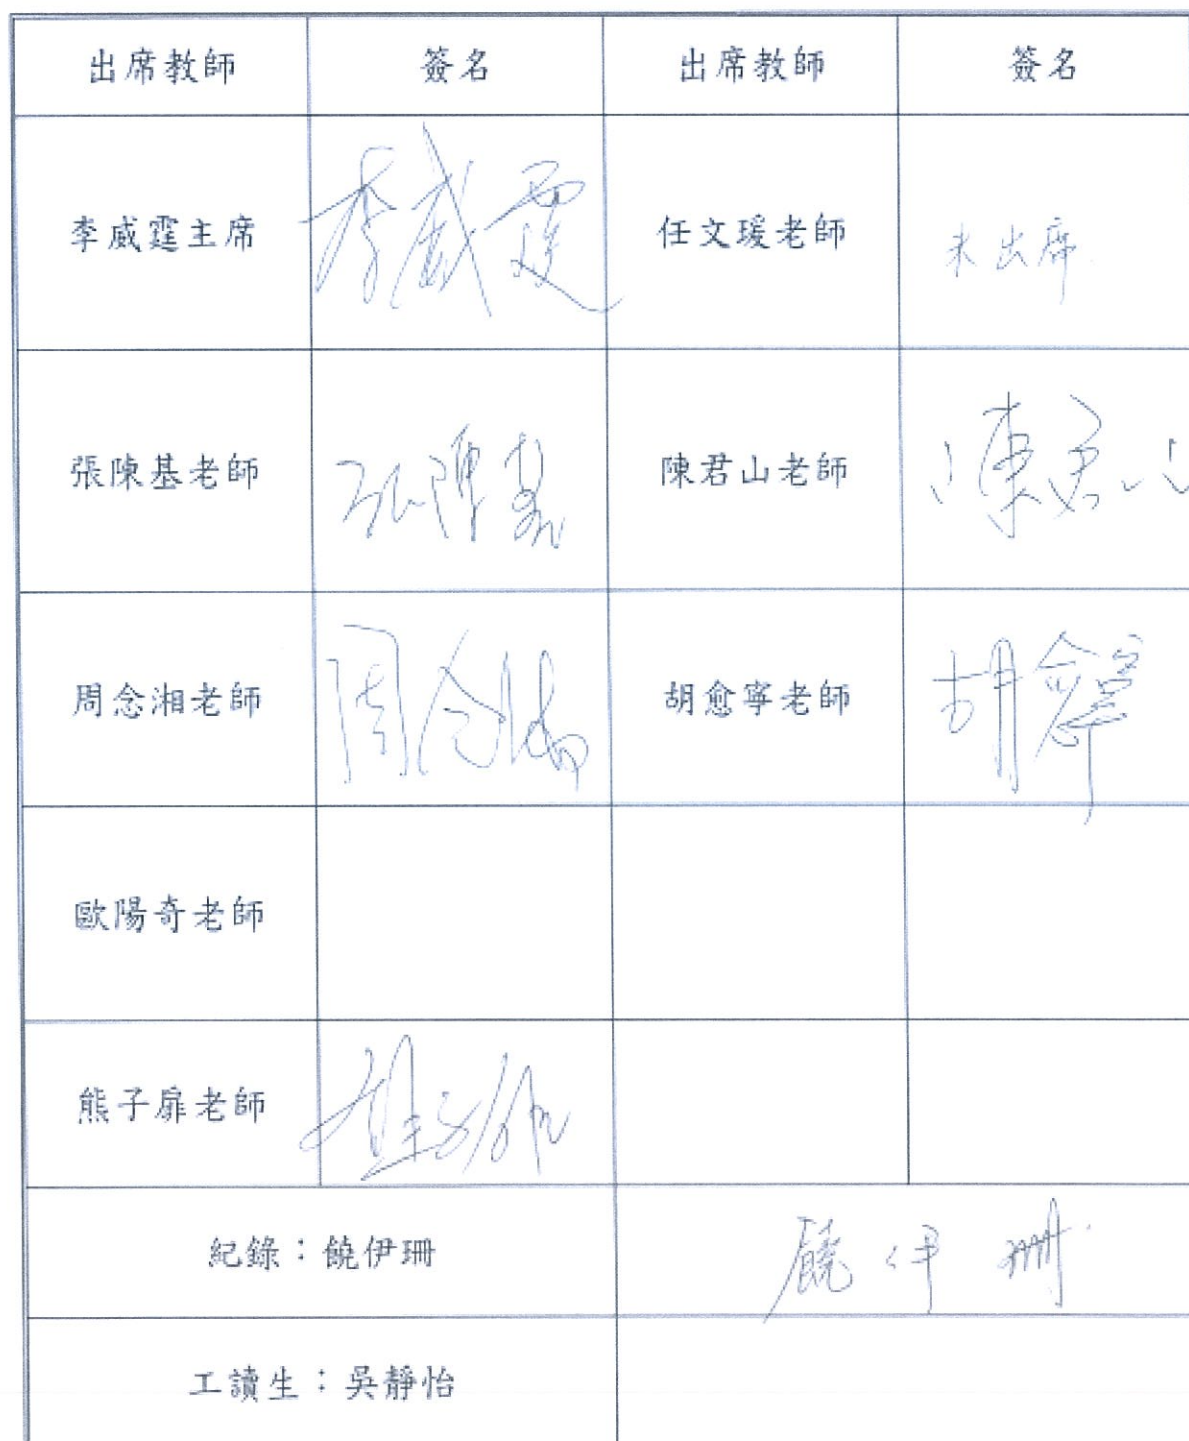 出席教師 簽名 出席教師 簽名
李威霆主席 李威霆 任文瑗老師 未出席
張陳基老師 張陳基 陳君山老師 陳君山
周念湘老師 周念湘 胡愈寧老師 胡愈寧
歐陽奇老師
熊子扉老師
紀錄：饒伊珊 饒伊珊
工讀生：吳靜怡